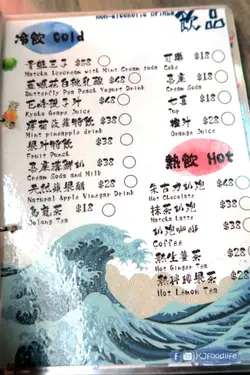 Non-alcoholic Drinks
飲品
冷飲 Cold
$58
Matcha Icecream with Mint Cream soda
$48
Butterfly Pea Punch Yogurt Drink
$38
Kyoho Grape Juice
$38
Mint pineapple drink
果汁特飲 $38
Fruit Punch
$38
Cream Soda and Milk
天然蘋果醋 $28
Natural Apple Vinegar Drink
烏龍茶 $18
Oolong Tea
可樂 $18
Coke
忌廉 $18
Cream Soda
七喜 $18
7up
橙汁 $28
Orange Juice
熱飲 Hot
朱古力奶泡 $48
Hot Chocolate
抹茶奶泡 $48
Matcha Latte
奶泡咖啡 $38
Coffee
熱生薑茶 $28
Hot Ginger Tea
熱檸檬果茶 $28
Hot Lemon Tea
KJfoodlife